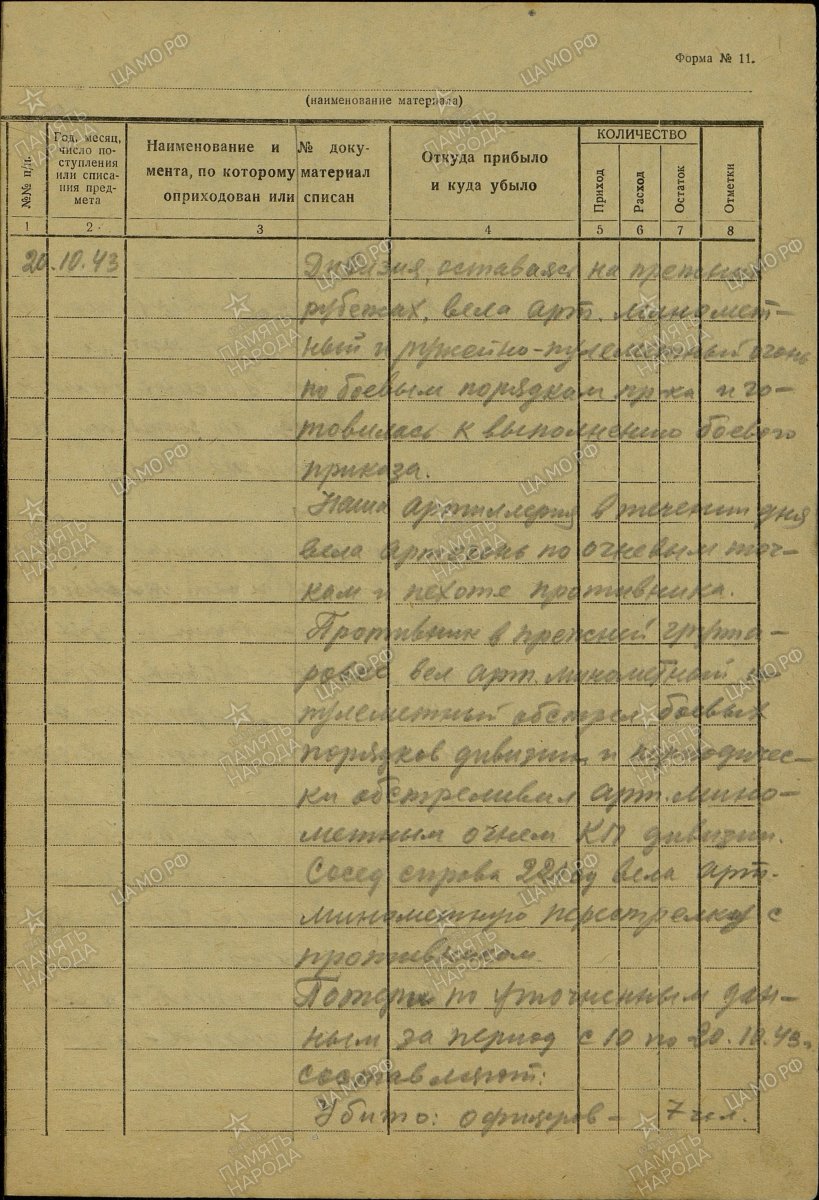 Форма № 11.
(наименование материала)
№№ п/п.
Год, месяц, число поступления или списания предмета
Наименование и № документа, по которому материал оприходован или списан
Откуда прибыло и куда убыло
КОЛИЧЕСТВО
Приход
Расход
Остаток
Отметки
1 2 3 4 5 6 7 8
20.10.43 Дивизия, оставаясь на прежних
рубежах, вела арт. миномет-
ный и ружейно-пулеметный огонь
по боевым порядкам пр-ка и го-
товилась к выполнению боевого
приказа.
Наша артиллерия в течении дня
вела артогонь по огневым точ-
кам и пехоте противника.
Противник в прежней группи-
ровке вел арт. минометный и
пулеметный обстрел боевых
порядков дивизии и периодичес-
ки обстреливал арт. мино-
метным огнем КП дивизии.
Сосед справа 221 сд вела арт.
минометную перестрелку с
противником.
Потери по уточненным дан-
ным за период с 10 по 20.10.43г.
составляют:
Убито: офицеров - 7 чел.
ПАМЯТЬ НАРОДА
ЦАМО.РФ